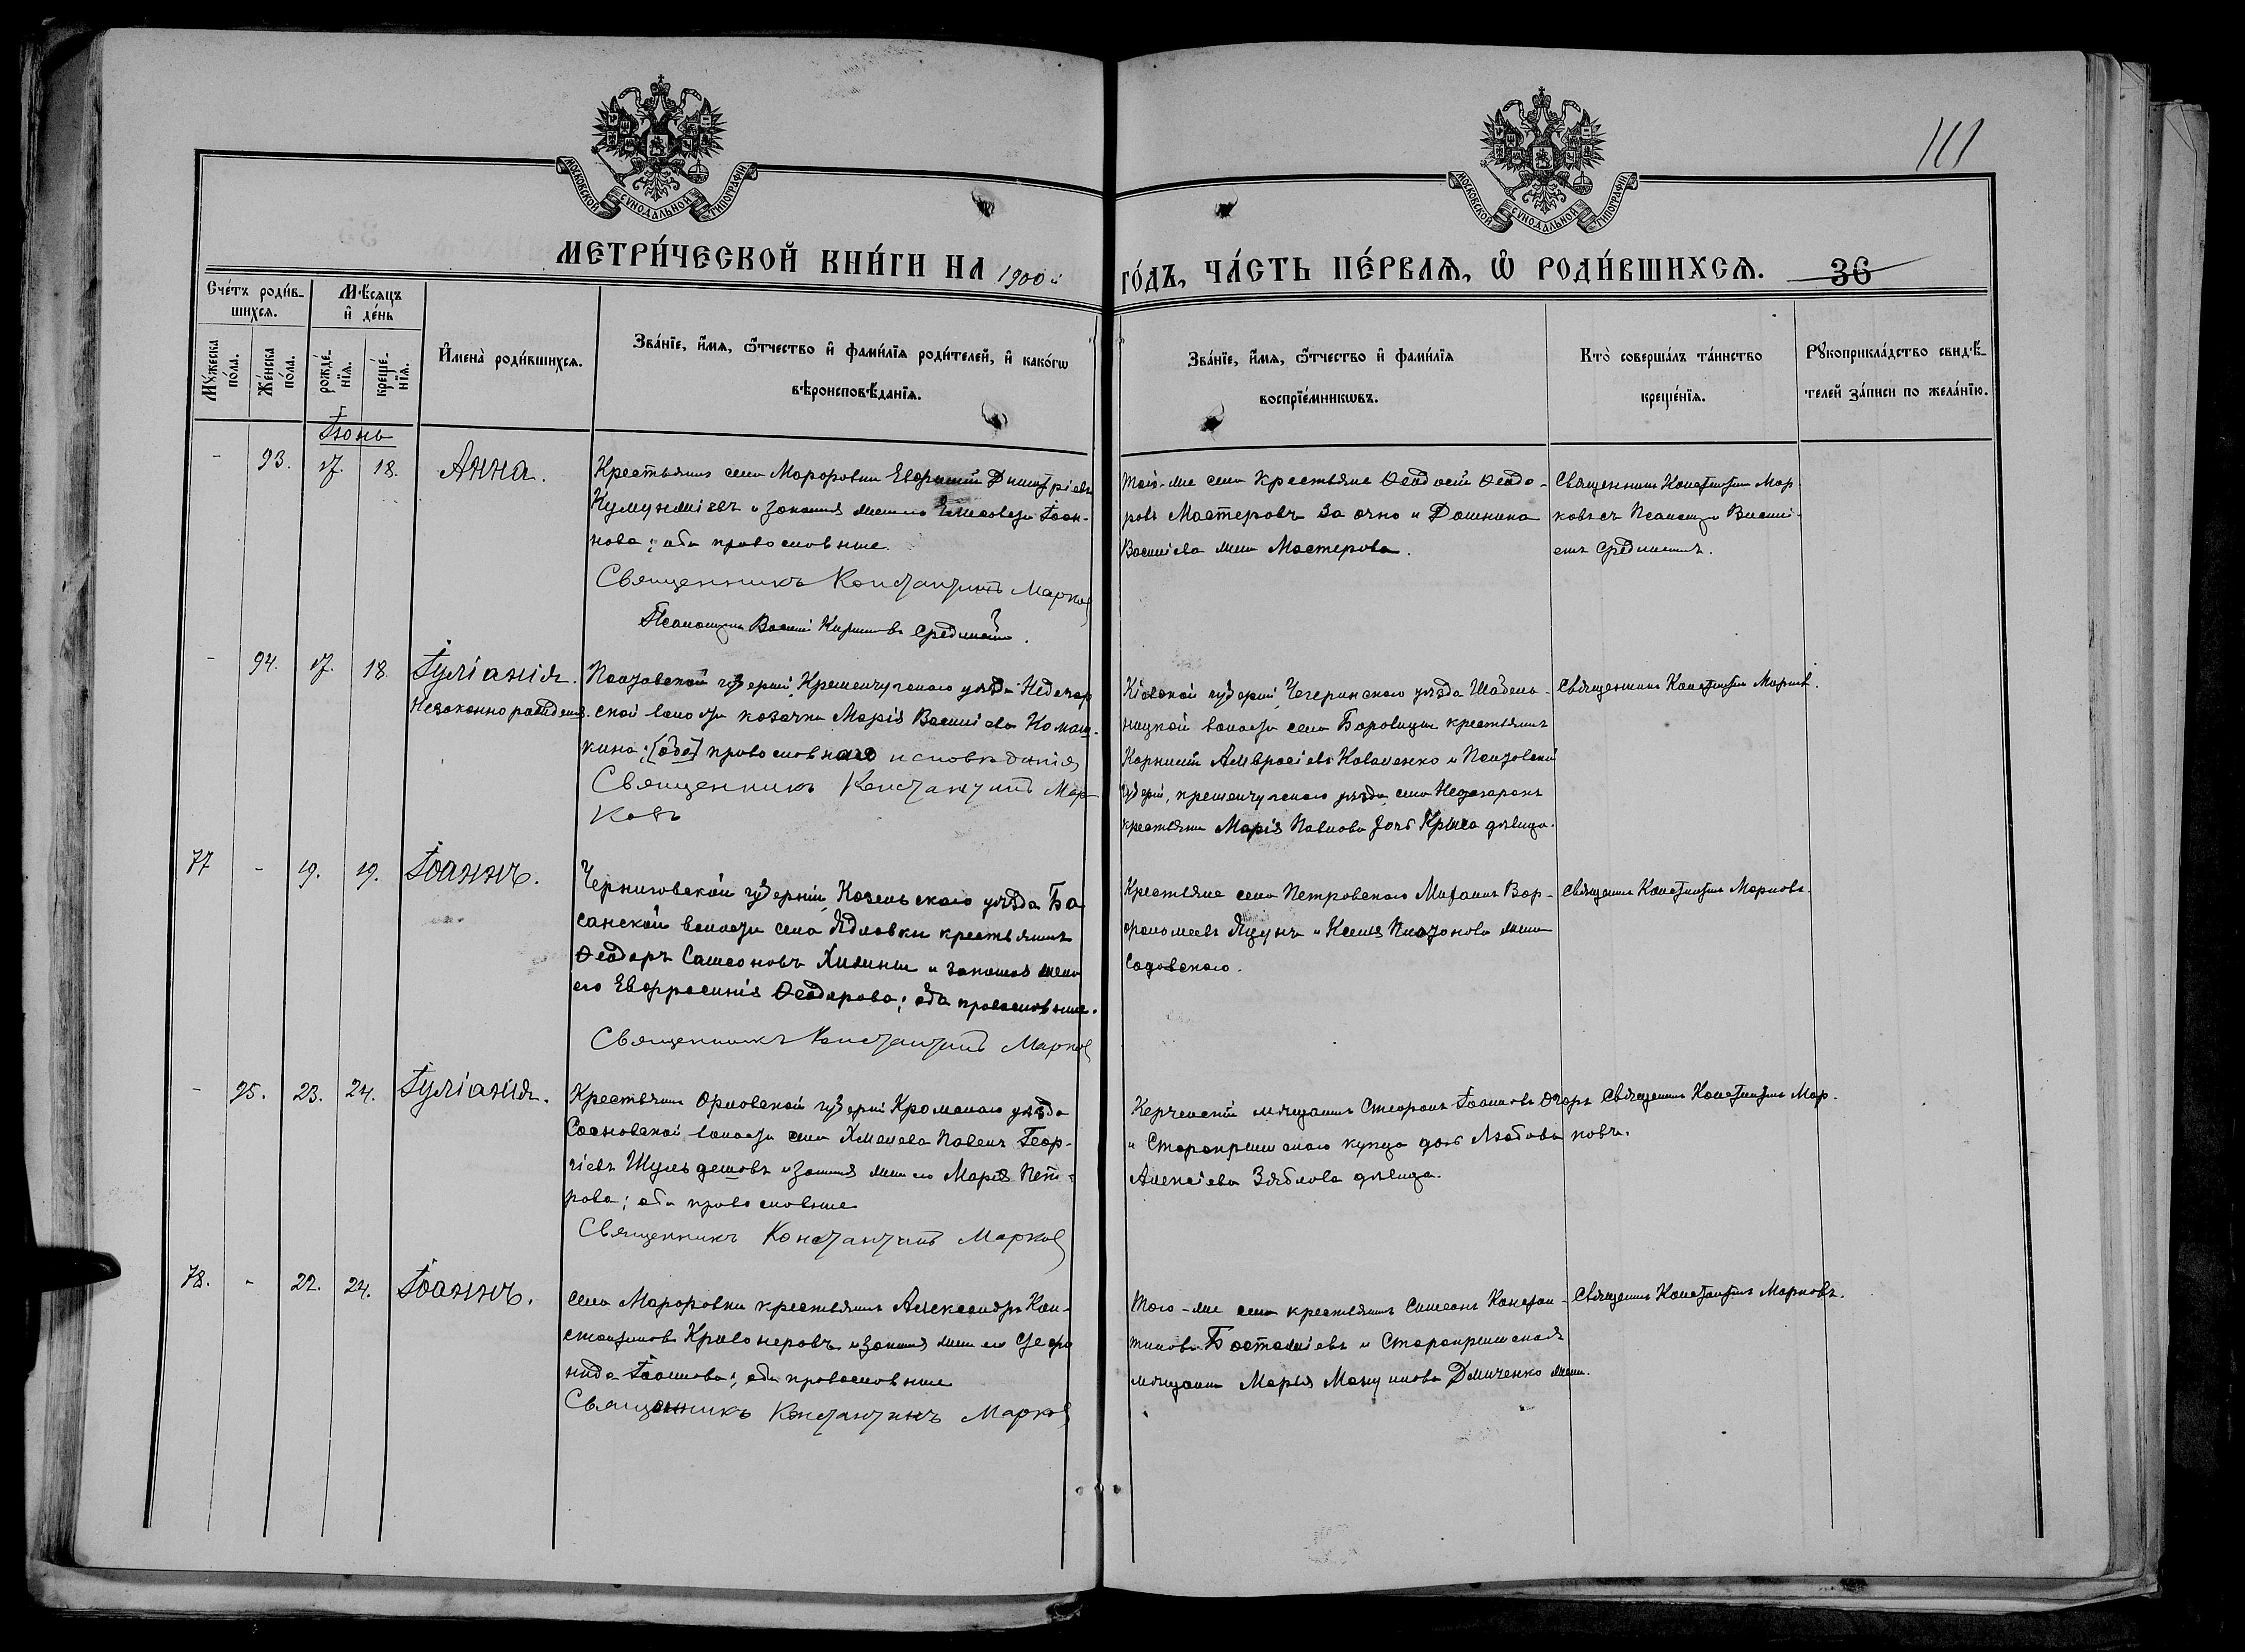 111
МОСКОВСКОЙ СѴНОДАЛЬНОЙ ТИПОГРАФІИ
МОСКОВСКОЙ СѴНОДАЛЬНОЙ ТИПОГРАФІИ
МЕТРИ́ЧЕСКОЙ КНИ́ГИ НА 1900й
ГО́ДЪ, ЧА́СТЬ ПЕ́РВАЯ, Ѡ РОДИ́ВШИХСЯ. 36
Сче́тъ роди́в-
шихся.
Мѣ́сяцъ
и де́нь
Му́жеска по́ла.
Же́нска по́ла.
рожде́-
нїя.
креще́-
нїя.
Имена̀ роди́вшихся.
Зва́нїе, и́мя, ѻ́тчество и фами́лїя роди́телей, и како́гѡ
вѣроисповѣ́данїя.
Зва́нїе, и́мя, ѻ́тчество и фами́лїя
воспрїе́мникѡвъ.
Кто̀ соверша́лъ та́инство
креще́нїя.
Рꙋкоприкла́дство свидѣ́-
телей за́писи по жела́нїю.
Іюнь
- 93. 17. 18. Анна.
Крестьянинъ села Дмитріевъ
и законная жена его Елисавета Іоан-
нова; оба православные.
Священникъ Константинъ Марков
Псаломщикъ Василій
Того-же села крестьяне Ѳеодосій Ѳеодо-
ровъ Мастеровъ заочно и Домникія
Василіева жена Мастерова.
Священникъ Константинъ Мар-
ковъ съ Псаломщ. Василі-
емъ
- 94. 17. 18. Іуліанія.
Незаконнорожденная.
Полтавской губерніи, Кременчугскаго уѣзда
ской волости козачка Марія Василіева Комаш-
кина; [оба] православнаго исповѣданія
Священникъ Константинъ Мар-
ковъ
Кіевской губерніи, Чегеринскаго уѣзда Шабель-
ницкой волости села Боровицы крестьянинъ
Корнилій Амвросіевъ Коваленко и Полтавской
губерніи, Кременчугскаго уѣзда, села
крестьянка Марія Павлова дочь Крыса дѣвица.
Священникъ Константинъ Марков.
77 - 19. 19. Іоаннъ.
Черниговской губерніи, Козельскаго уѣзда Ба-
санской волости села Ядловки крестьянинъ
Ѳеодоръ Самсоновъ и законная жена
его Евфросинія Ѳеодорова; оба православные.
Священникъ Константинъ Марков
Крестьяне села Петровскаго Михаилъ Вар-
фоломеевъ Яцунъ и Ксенія Платонова жена
Садовскаго.
Священникъ Константинъ Марковъ.
- 95. 23. 24. Іуліанія.
Крестьянинъ Орловской губерніи Кромскаго уѣзда
Сосновской волости села Хмелева Павелъ Геор-
гіевъ Шульдешовъ и законная жена его Марія Пет-
рова; оба православные
Священникъ Константинъ Марков
Керченскій мѣщанинъ Стефанъ Іоанновъ
и Старокрымскаго купца дочь Любовь
Алексіева Зяблова дѣвица.
Священникъ Константинъ Мар-
ковъ.
78. - 22. 24. Іоаннъ.
Села крестьянинъ Александръ Кон-
стантиновъ и законная жена его
нида Іоаннова; оба православные
Священникъ Константинъ Марков
Того-же села крестьянинъ Симеонъ Констан-
тиновъ и Старокрымская
мѣщанка Марія жена.
Священникъ Константинъ Марковъ.